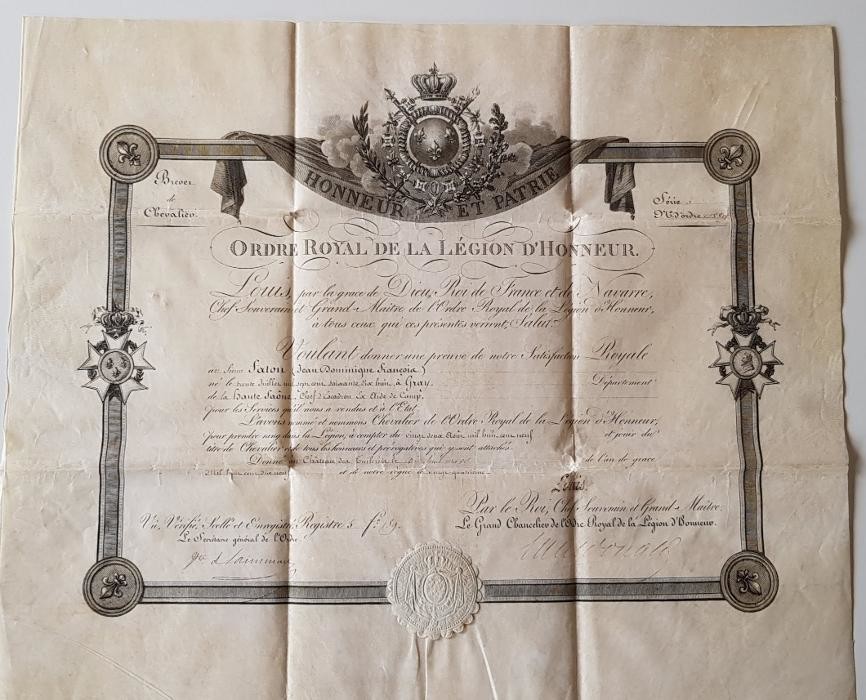 HONNEUR ET PATRIE
Brevet
de
Chevalier.
Série
N.º d'ordre
ORDRE ROYAL DE LA LÉGION D'HONNEUR.
Louis, par la grace de Dieu, Roi de France et de Navarre,
Chef Souverain et Grand-Maître de l'Ordre Royal de la Légion d'Honneur,
à tous ceux qui ces présentes verront, Salut.
Voulant donner une preuve de notre Satisfaction Royale
au Sieur Saton (Jean Dominique François)
né le trente Juillet mil sept cent soixante dix huit, à Gray, Département
de la haute Saône, Chef d'Escadron Ex Aide de Camp,
pour les Services qu'il nous a rendus et à l'Etat.
L'avons nommé et nommons Chevalier de l'Ordre Royal de la Légion d'Honneur,
pour prendre rang dans la Légion, à compter du vingt deux Août mil huit cent neuf et jouir du
titre de Chevalier et de tous les honneurs et prérogatives qui y sont attachés.
Donné au Château des Tuileries le de l'an de grace
mil huit cent dix neuf et de notre règne le vingt quatrième.
Louis.
Par le Roi, Chef Souverain et Grand-Maître
Vu, Vérifié, Scellé et Enregistré, Registre 5 f.º
Le Grand Chancelier de l'Ordre Royal de la Légion d'Honneur.
Le Secrétaire général de l'Ordre
Macdonald